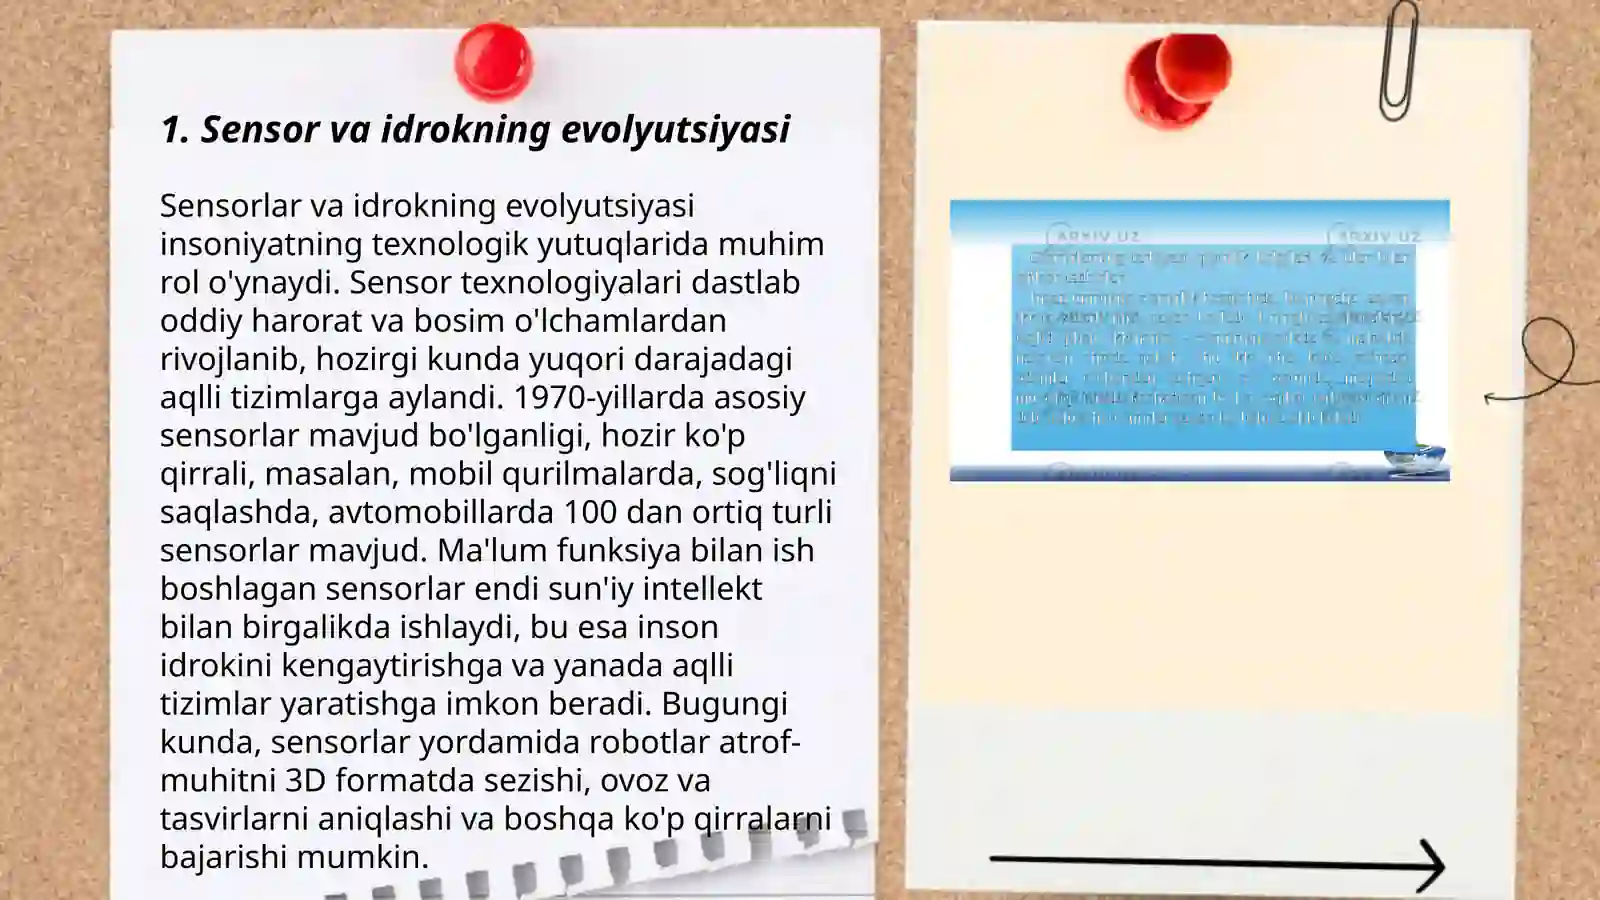 1. Sensor va idrokning evolyutsiyasi
Sensorlar va idrokning evolyutsiyasi
insoniyatning texnologik yutuqlarida muhim
rol o'ynaydi. Sensor texnologiyalari dastlab
oddiy harorat va bosim o'lchamlardan
rivojlanib, hozirgi kunda yuqori darajadagi
aqlli tizimlarga aylandi. 1970-yillarda asosiy
sensorlar mavjud bo'lganligi, hozir ko'p
qirrali, masalan, mobil qurilmalarda, sog'liqni
saqlashda, avtomobillarda 100 dan ortiq turli
sensorlar mavjud. Ma'lum funksiya bilan ish
boshlagan sensorlar endi sun'iy intellekt
bilan birgalikda ishlaydi, bu esa inson
idrokini kengaytirishga va yanada aqlli
tizimlar yaratishga imkon beradi. Bugungi
kunda, sensorlar yordamida robotlar atrof-
muhitni 3D formatda sezishi, ovoz va
tasvirlarni aniqlashi va boshqa ko'p qirralarni
bajarishi mumkin.
ARXIV.UZ ARXIV.UZ